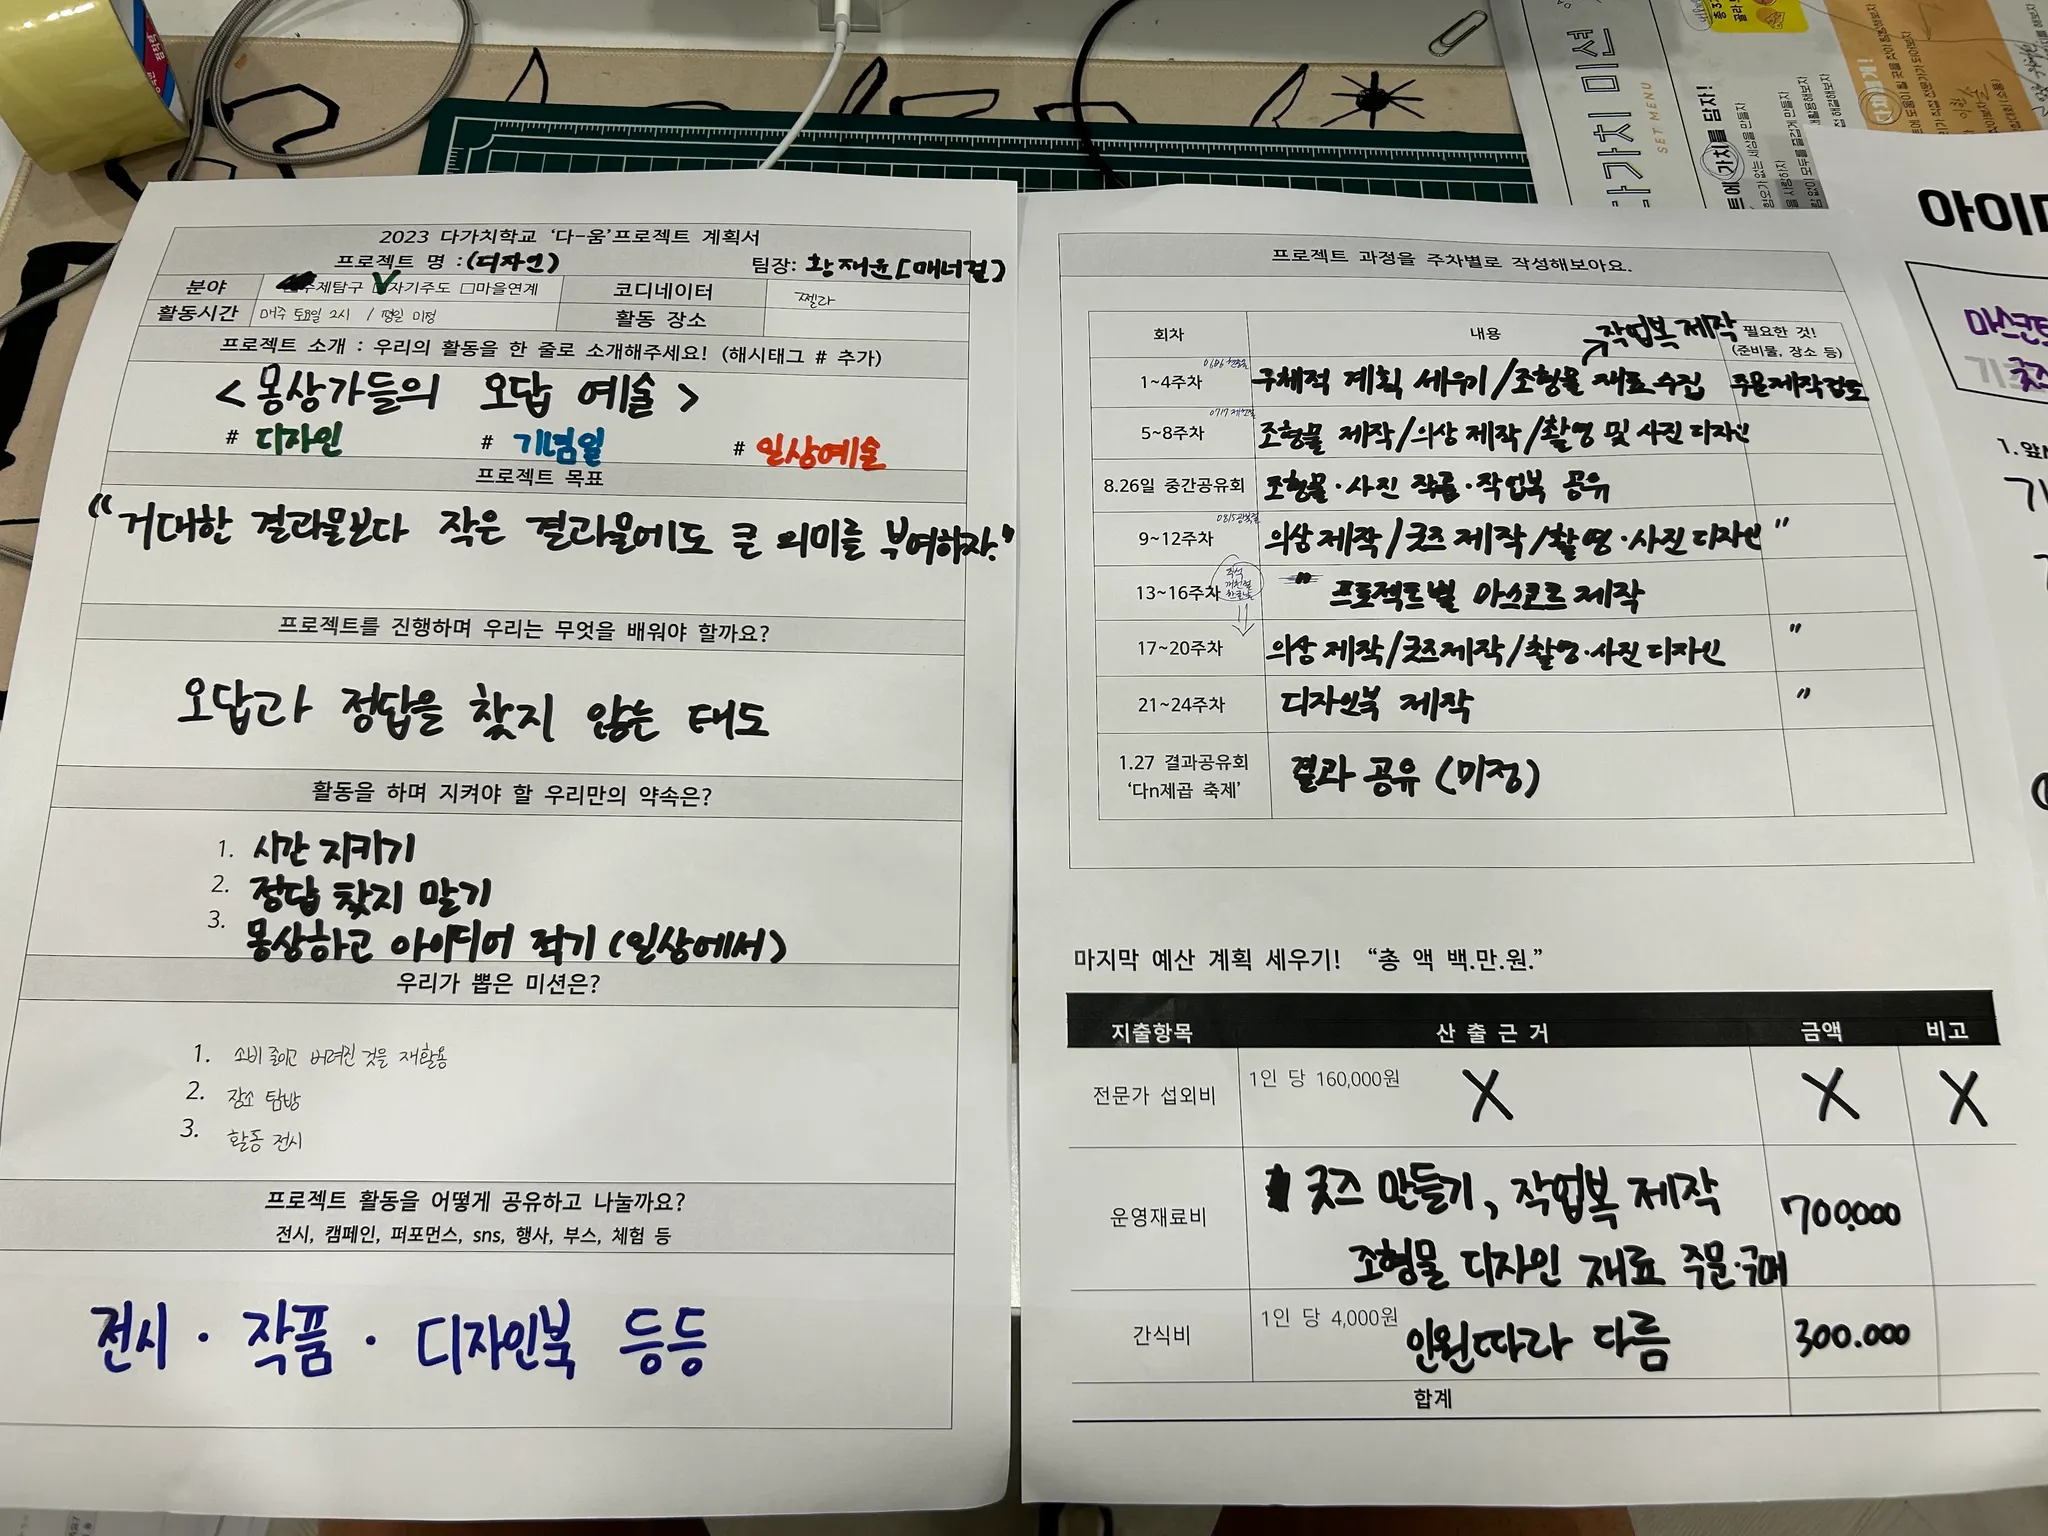 2023 다가치학교 '다-움'프로젝트 계획서
프로젝트 명 : (디자인) 팀장: 황재윤[매너걸]
분야 주제탐구 □자기주도 □마을연계 코디네이터 쩰라
활동시간 매주 토요일 2시 / 평일 미정 활동 장소
프로젝트 소개 : 우리의 활동을 한 줄로 소개해주세요! (해시태그 # 추가)
<몽상가들의 오답 예술>
# 디자인 # 기념일 # 일상예술
프로젝트 목표
"거대한 결과물보다 작은 결과물에도 큰 의미를 부여하자."
프로젝트를 진행하며 우리는 무엇을 배워야 할까요?
오답과 정답을 찾지 않는 태도
활동을 하며 지켜야 할 우리만의 약속은?
1. 시간 지키기
2. 정답 찾지 말기
3. 몽상하고 아이디어 적기 (일상에서)
우리가 뽑은 미션은?
1. 소비 줄이고 버려진 것을 재활용
2. 장소 탐방
3. 활동 전시
프로젝트 활동을 어떻게 공유하고 나눌까요?
전시, 캠페인, 퍼포먼스, sns, 행사, 부스, 체험 등
전시 · 작품 · 디자인북 등등
프로젝트 과정을 주차별로 작성해보아요.
회차 내용 필요한 것!
(준비물, 장소 등)
작업복 제작
0606 현충일
1~4주차 구체적 계획 세우기/조형물 재료 수집 주문제작검토
0717 제헌절
5~8주차 조형물 제작/의상 제작/촬영 및 사진 디자인
8.26일 중간공유회 조형물·사진 작품·작업복 공유
0815 광복절
9~12주차 의상 제작/굿즈 제작/촬영·사진 디자인 "
추석
개천절
한글날
13~16주차 프로젝트별 마스코트 제작
17~20주차 의상 제작/굿즈제작/촬영·사진 디자인 "
21~24주차 디자인북 제작 "
1.27 결과공유회
'다n제곱 축제' 결과 공유 (미정)
마지막 예산 계획 세우기! "총 액 백.만.원."
지출항목 산 출 근 거 금액 비고
전문가 섭외비 1인 당 160,000원 X X X
운영재료비 굿즈 만들기, 작업복 제작 700.000
조형물 디자인 재료 주문·구매
간식비 1인 당 4,000원 인원따라 다름 300.000
합계
다가치 미션
SET MENU
가치를 담자!
아이
굿즈
1. 앞